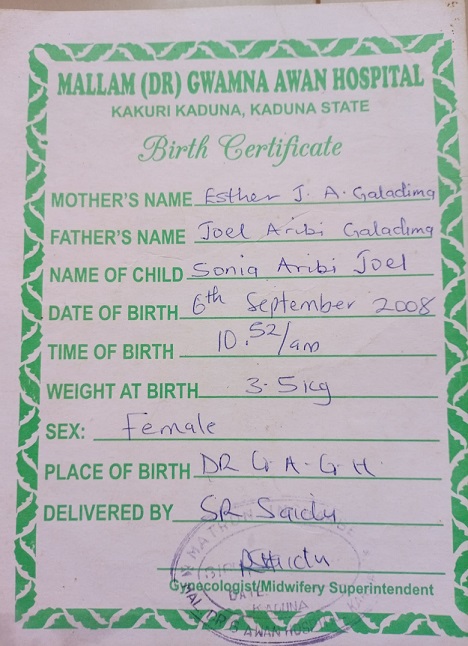 MALLAM (DR) GWAMNA AWAN HOSPITAL
KAKURI KADUNA, KADUNA STATE
Birth Certificate
MOTHER'S NAME Esther J. A. Galadima
FATHER'S NAME Joel Aribi Galadima
NAME OF CHILD Sonia Aribi Joel
DATE OF BIRTH 6th September 2008
TIME OF BIRTH 10.52/am
WEIGHT AT BIRTH 3.5kg
SEX: Female
PLACE OF BIRTH DR G A. G H
DELIVERED BY SR Saidu
Gynecologist/Midwifery Superintendent
DATE
KADUNA